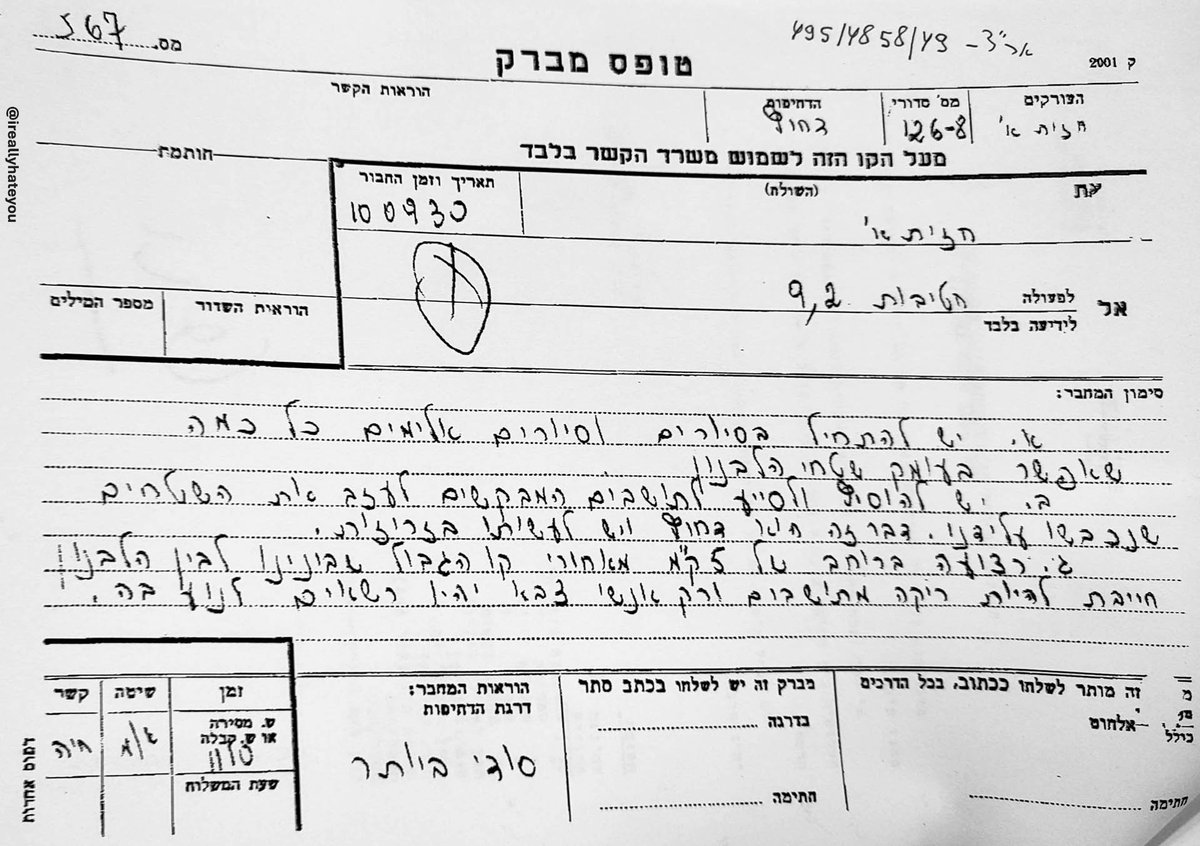 אר"צ - 495/4858/49
ק 2001
מס. 567
טופס מברק
העורקים
חזית א'
מס' סדורי
126-8
הדחיפות
דחוף
הוראות הקשר
מעל הקו הזה לשמוש משרד הקשר בלבד
חותמת
את
(השולח)
חזית א'
תאריך וזמן החבור
100930
אל
לפעולה
חטיבות 9,2
לידיעה בלבד
הוראית השדור
מספר המילים
סימון המחבר:
א. יש להתחיל בסיורים וסיורים אלימים כל כמה
שאפשר בעומק שטחי הלבנון.
ב. יש להוסיף ולסייע לתושבים המבקשים לעזב את השטחים
שנכבשו על ידנו. דבר זה הינו דחוף ויש לעשותו בזריזות.
ג. רצועה ברוחב של 5 ק"מ מאחורי קו הגבול שבינינו לבין הלבנון
חייבת להיות ריקה מתושבים ורק אנשי צבא יהיו רשאים לנוע בה.
זה מותר לשלחו ככתוב, בכל הדרכים
כולל
אלחוט
חתימה
מברק זה יש לשלחו בכתב סתר
בדרגה
חתימה
הוראות המחבר:
דרגת הדחיפות
סודי ביותר
זמן
שיטה
קשר
ש. מסירה
או ש. קבלה
חיה
שעת המשלוח
דפוס אחדות
@ireallyhateyou